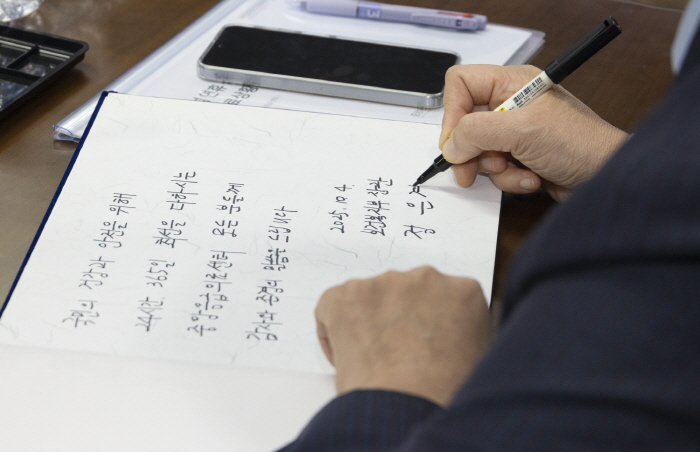 국민의 건강과 안전을 위해
24시간. 365일 최선을 다하시는
중앙응급의료센터 모든 분들께
감사와 존경의 말씀을 드립니다
2025. 10. 4.
보건복지부 장관
정 은